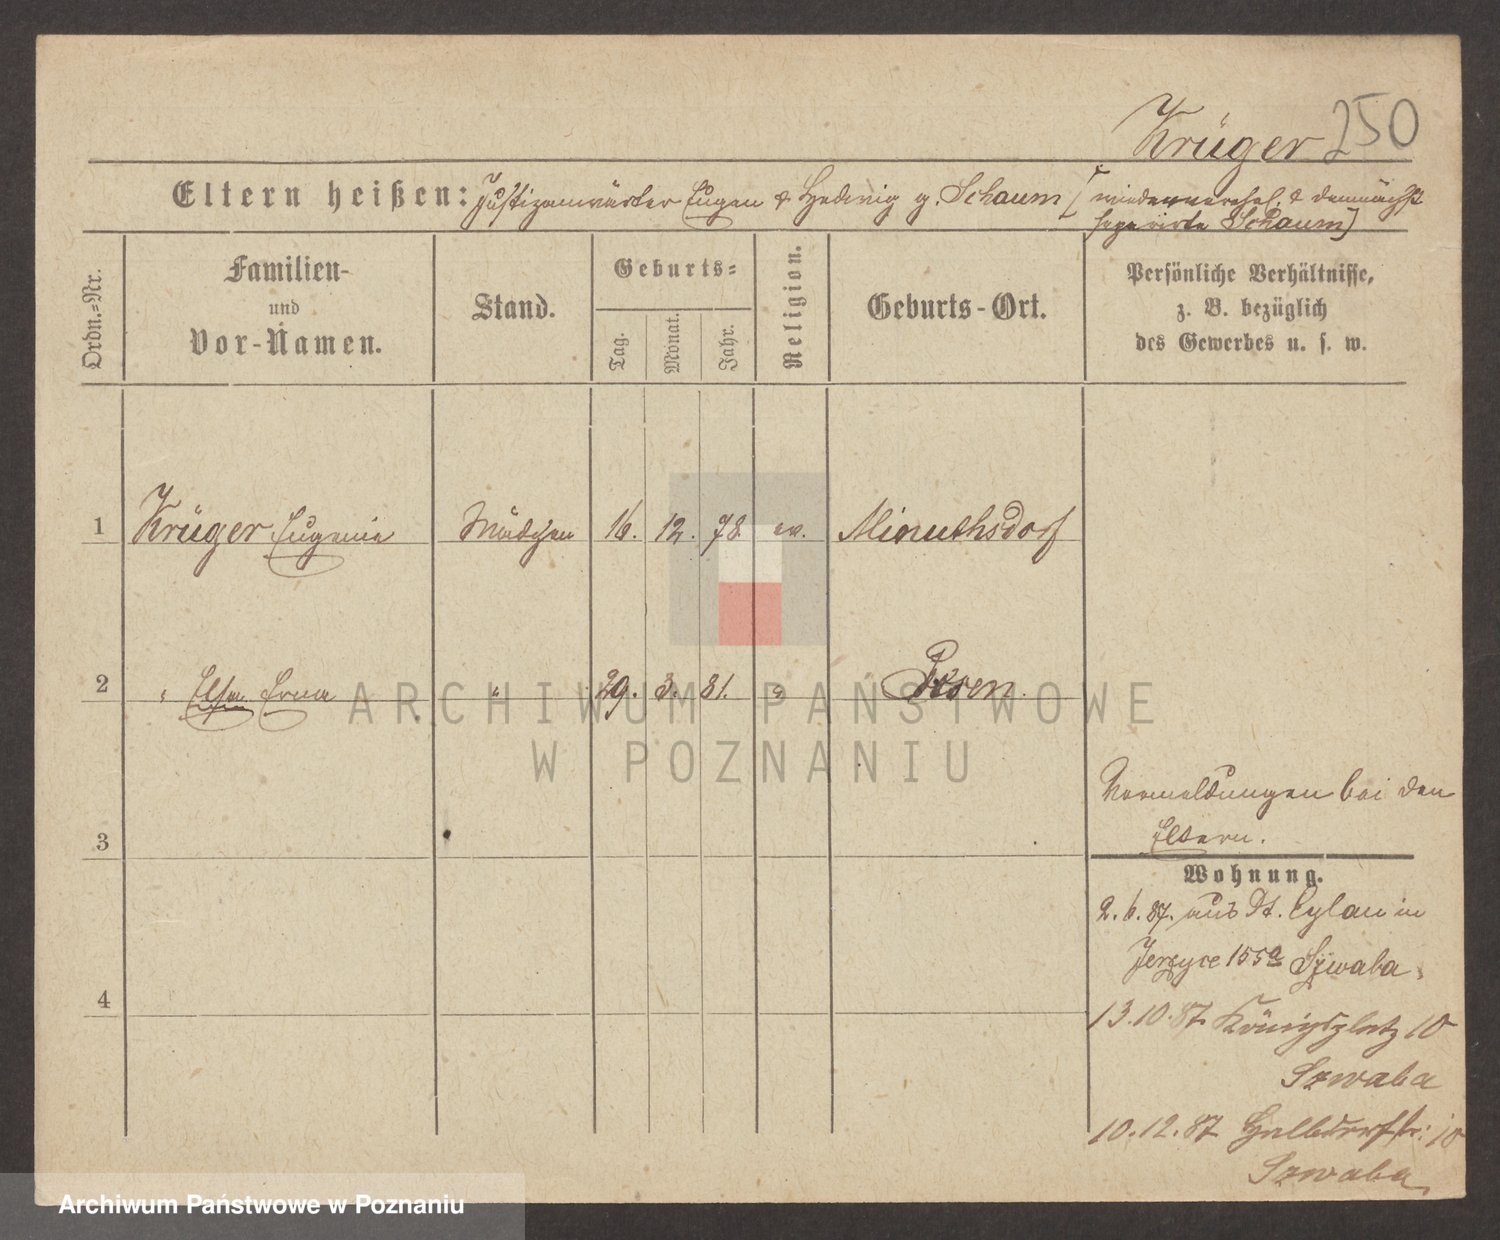 Krüger 250
Eltern heißen: Justizanwärter Eugen & Hedwig g. Schaum [wiederverehel. & demnächst
separirte Schaum]
Ordn.=Nr.
Familien-
und
Vor-Namen.
Stand.
Geburts=
Tag.
Monat.
Jahr.
Religion.
Geburts-Ort.
Persönliche Verhältnisse,
z. B. bezüglich
des Gewerbes u. s. w.
1 Krüger Eugenie Mädchen 16. 12. 78. ev. Minuthsdorf
2 " Elsa Erna " 29. 3. 81. " Posen.
3
4
Vormeldungen bei den
Eltern.
Wohnung.
2. 6. 87. aus Dt. Eylau in
Jerzyce 155a Szwaba.
13. 10. 87 Königsplatz 10
Szwaba
10. 12. 87 Halbdorfstr: 10
Szwaba
ARCHIWUM PAŃSTWOWE
W POZNANIU
Archiwum Państwowe w Poznaniu